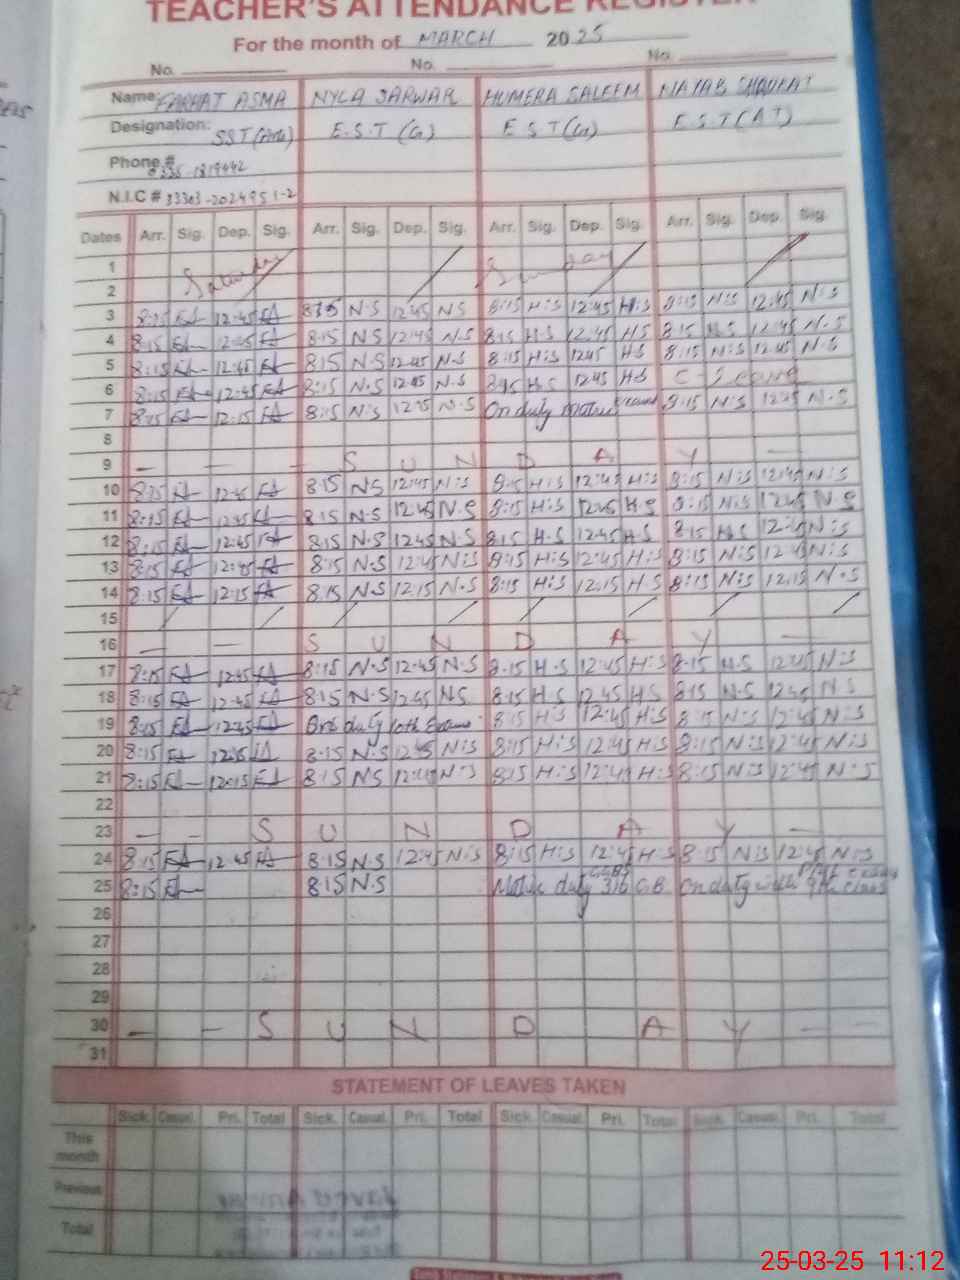 TEACHER'S ATTENDANCE REGISTER
For the month of MARCH 2025
No. No. No.
Name: FARHAT ASMA NYLA SARWAR HUMERA SALEEM NAYAB SHOUKAT
Designation: SST (Arts) E.S.T (G) E S T (G) E S T (A T)
Phone #
N.I.C #
Dates Arr. Sig. Dep. Sig. Arr. Sig. Dep. Sig. Arr. Sig. Dep. Sig. Arr. Sig. Dep. Sig.
1 Saturday Sunday
2
3 8:15 FA 12:45 FA 8:15 N.S 12:45 N S 8:15 H:S 12:45 H.S 8:15 N:S 12:45 N:S
4 8:15 FA 12:45 FA 8:15 N S 12:45 N.S 8:15 H.S 12:45 H S 8:15 N.S 12:45 N.S
5 8:15 FA 12:45 FA 8:15 N S 12:45 N.S 8:15 H:S 12:45 H.S 8:15 N:S 12:45 N.S
6 8:15 FA 12:45 FA 8:15 N.S 12:45 N.S 8:15 H.S 12:45 H.S C - Leave
7 8:15 FA 12:15 FA 8:15 N:S 12:15 N.S On duty Matric exams 8:15 N:S 12:15 N.S
8
9 — — — S U N D A Y —
10 8:15 FA 12:45 FA 8:15 N.S 12:45 N:S 8:15 H:S 12:45 H:S 8:15 N:S 12:45 N:S
11 8:15 FA 12:45 FA 8:15 N.S 12:45 N.S 8:15 H:S 12:45 H.S 8:15 N.S 12:45 N.S
12 8:15 FA 12:45 FA 8:15 N.S 12:45 N.S 8:15 H.S 12:45 H.S 8:15 N.S 12:45 N:S
13 8:15 FA 12:45 FA 8:15 N.S 12:45 N:S 8:15 H:S 12:45 H:S 8:15 N:S 12:45 N:S
14 8:15 FA 12:15 FA 8:15 N.S 12:15 N.S 8:15 H:S 12:15 H.S 8:15 N:S 12:15 N.S
15
16 — — S U N D A Y —
17 8:15 FA 12:45 FA 8:15 N.S 12:45 N.S 8:15 H.S 12:45 H:S 8:15 N.S 12:45 N:S
18 8:15 FA 12:45 FA 8:15 N.S 12:45 N.S 8:15 H.S 12:45 H.S 8:15 N.S 12:45 N S
19 8:15 FA 12:45 FA duty 10th Exams 8:15 H:S 12:45 H:S 8:15 N:S 12:45 N:S
20 8:15 FA 12:45 FA 8:15 N.S 12:45 N:S 8:15 H:S 12:45 H:S 8:15 N:S 12:45 N:S
21 8:15 FA 12:15 FA 8:15 N'S N:S 8:15 H:S 12:45 H:S 8:15 N:S 12:45 N:S
22
23 — — S U N D A Y —
24 8:15 FA 12:45 FA 8:15 N.S 12:45 N:S 8:15 H:S 12:45 H:S 8:15 N:S 12:45 N:S
25 8:15 FA 8:15 N.S Matric duty 316 G.B on duty with 9th class
26
27
28
29
30 — — S U N D A Y — —
31
STATEMENT OF LEAVES TAKEN
Sick. Casual Pri. Total Sick. Casual Pri. Total Sick Casual Pri. Total Sick. Casual Pri. Total
This month
Previous
Total
25-03-25 11:12